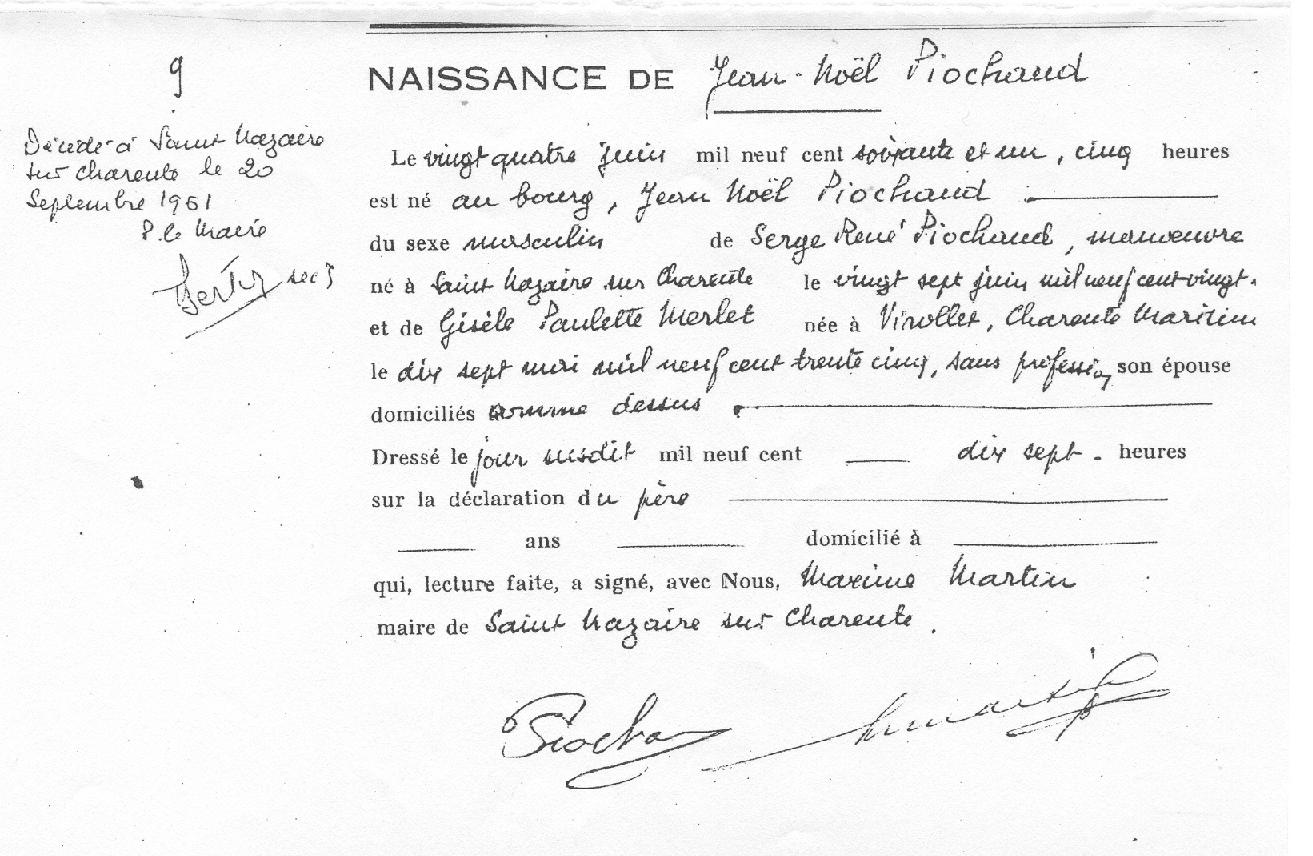 9
Décédé à Saint Nazaire
sur Charente le 20
Septembre 1961
P. le Maire
NAISSANCE DE Jean-Noël Piochaud
Le vingt quatre juin mil neuf cent soixante et un, cinq heures
est né au bourg, Jean Noël Piochaud
du sexe masculin de Serge René Piochaud, manœuvre
né à Saint Nazaire sur Charente le vingt sept juin mil neuf cent vingt.
et de Gisèle Paulette Merlet née à Virollet, Charente Maritime
le dix sept mai mil neuf cent trente cinq, sans profession, son épouse
domiciliés comme dessus.
Dressé le jour susdit mil neuf cent dix sept - heures
sur la déclaration du père
ans domicilié à
qui, lecture faite, a signé, avec Nous, Maxime Martin
maire de Saint Nazaire sur Charente.